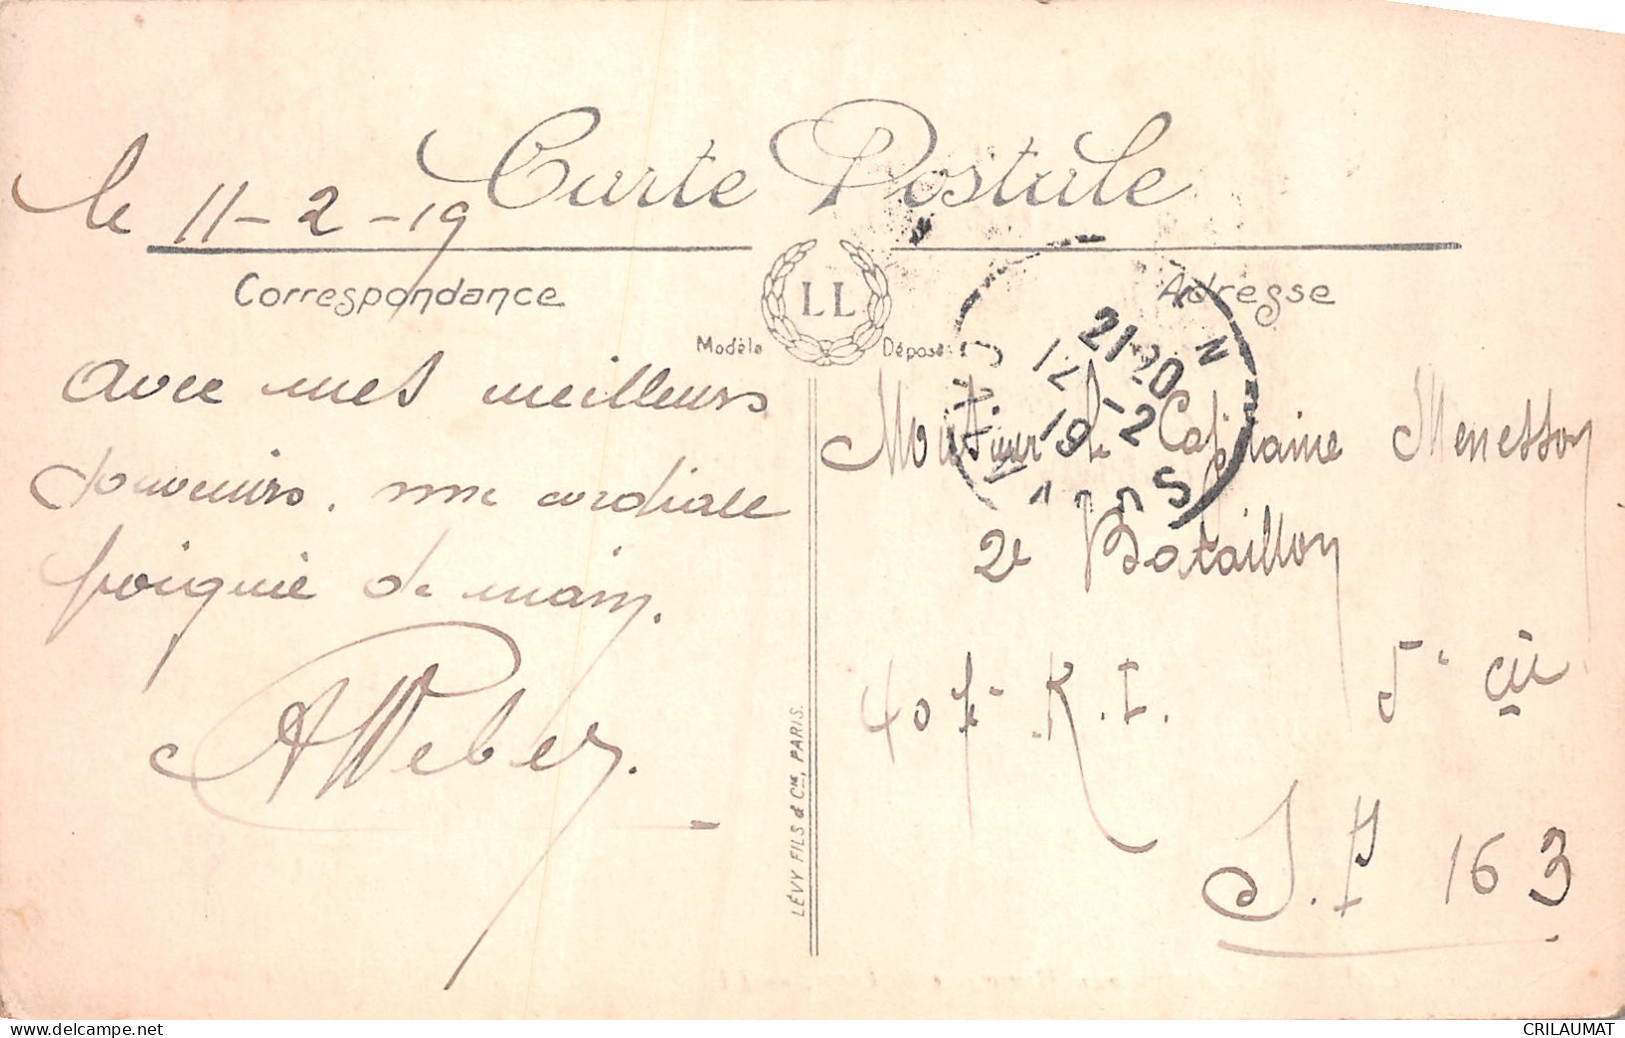 Carte Postale
le 11-2-19
Correspondance
Adresse
LL
Modèle
Déposé
Avec mes meilleurs
souvenirs. une cordiale
poignié de main.
A Weber.
LÉVY FILS & Cie, PARIS.
21·20
12 -2
19
Monsieur le Capitaine Menesson
2e Bataillon
407e R. I. 5e Cie
S. P 163
CRILAUMAT